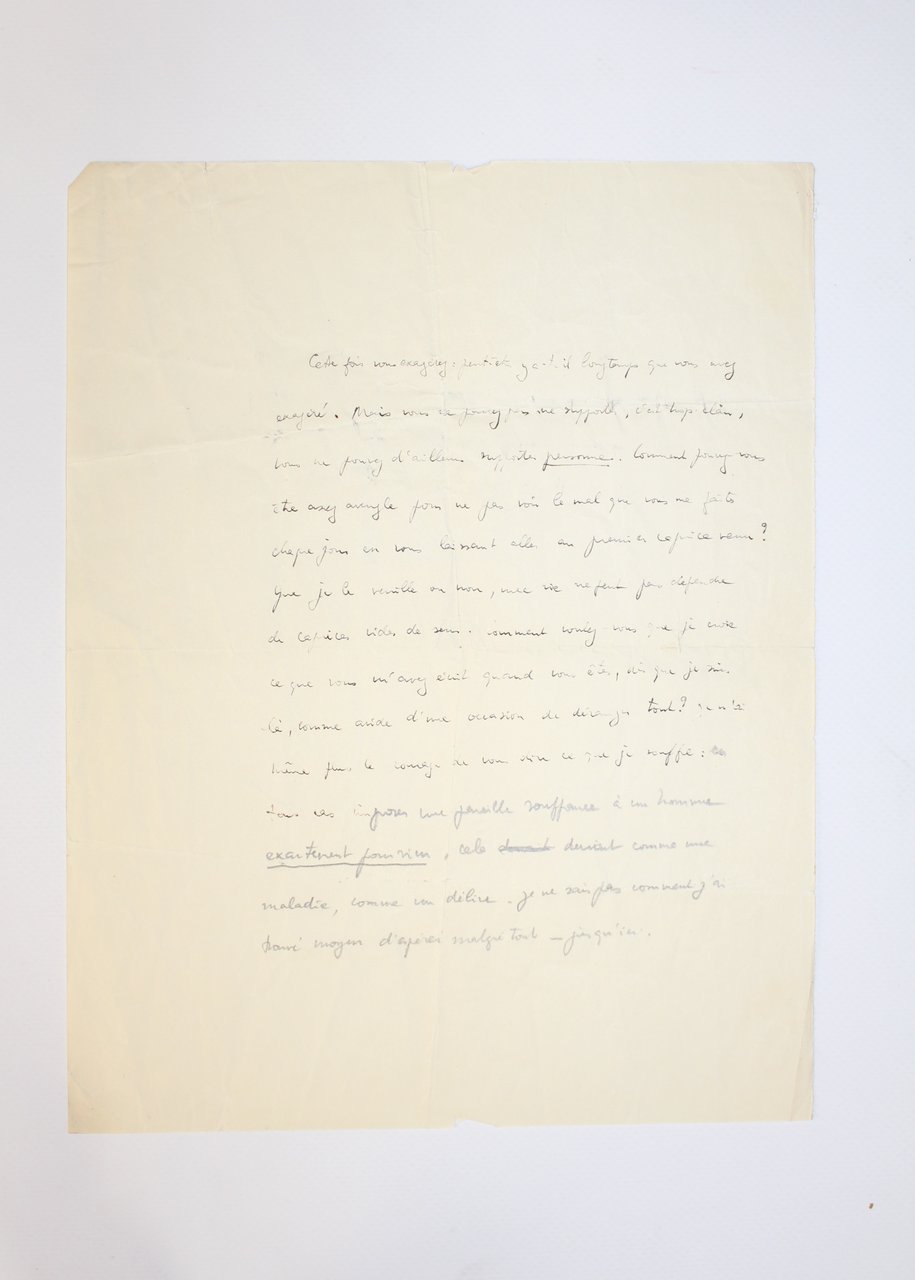 Cette fois vous exagérez : peut-être y a-t-il longtemps que vous avez
exagéré. Mais vous ne pouvez pas me supporter, c'est trop clair,
vous ne pouvez d'ailleurs supporter personne. Comment pouvez-vous
être assez aveugle pour ne pas voir le mal que vous me faites
chaque jour en vous laissant aller au premier caprice venu ?
Que je le veuille ou non, une vie ne peut pas dépendre
de caprices vides de sens. Comment voulez-vous que je croie
ce que vous m'avez écrit quand vous êtes, dès que je suis
là, comme avide d'une occasion de déranger tout ? Je n'ai
même plus le courage de vous dire ce que je souffre :
tous cas imposer une pareille souffrance à un homme
exactement pour rien, cela devient comme une
maladie, comme un délire. Je ne sais pas comment j'ai
trouvé moyen d'espérer malgré tout — jusqu'ici.